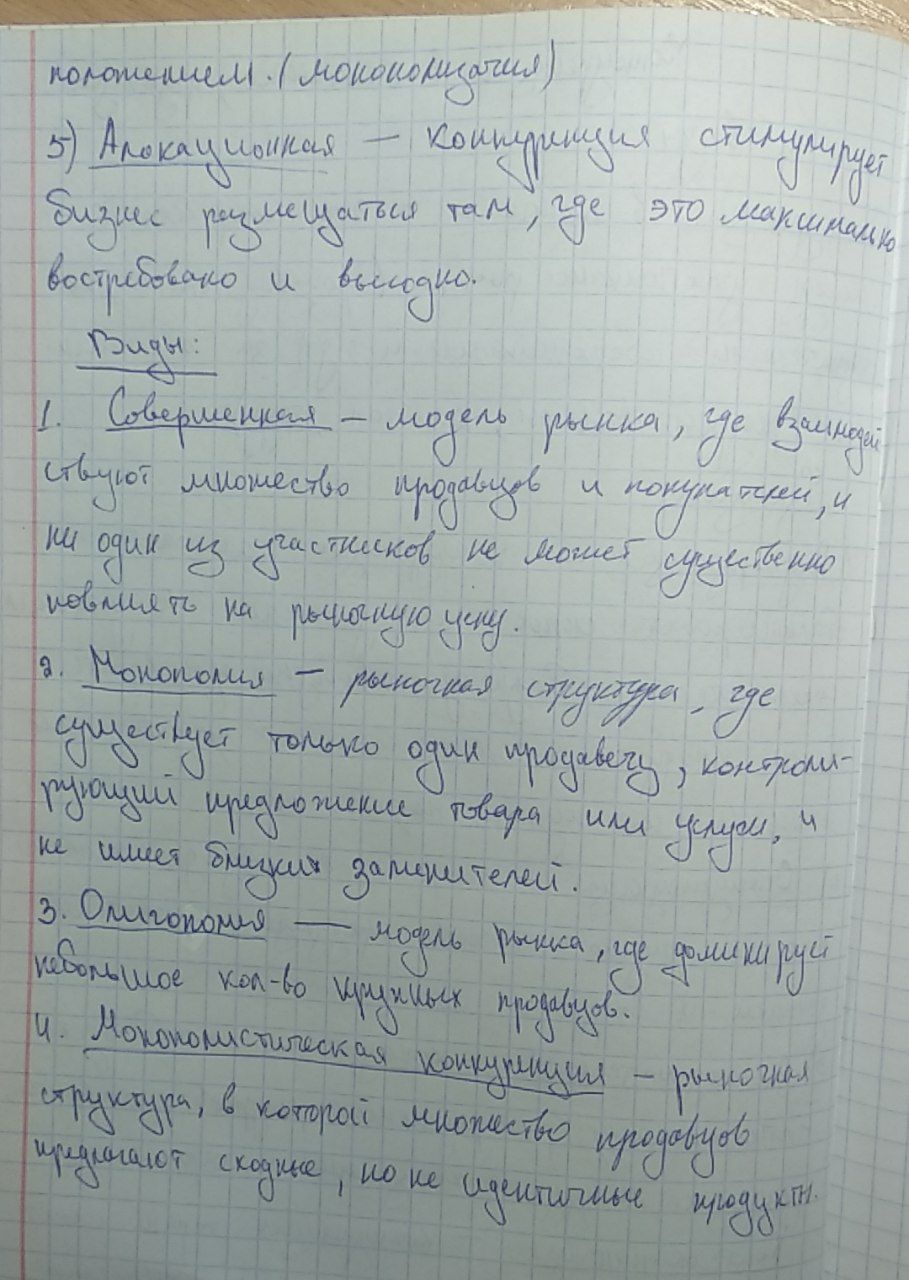 положением. (монополизация)
5) Алокационная — конкуренция стимулирует
бизнес размещаться там, где это максимально
востребовано и выгодно.
Виды:
1. Совершенная — модель рынка, где взаимодей
ствуют множество продавцов и покупателей, и
ни один из участников не может существенно
повлиять на рыночную цену.
2. Монополия — рыночная структура, где
существует только один продавец, контроли-
рующий предложение товара или услуги, и
не имеет близких заменителей.
3. Олигополия — модель рынка, где доминирует
небольшое кол-во крупных продавцов.
4. Монополистическая конкуренция — рыночная
структура, в которой множество продавцов
предлагают сходные, но не идентичные продукты.